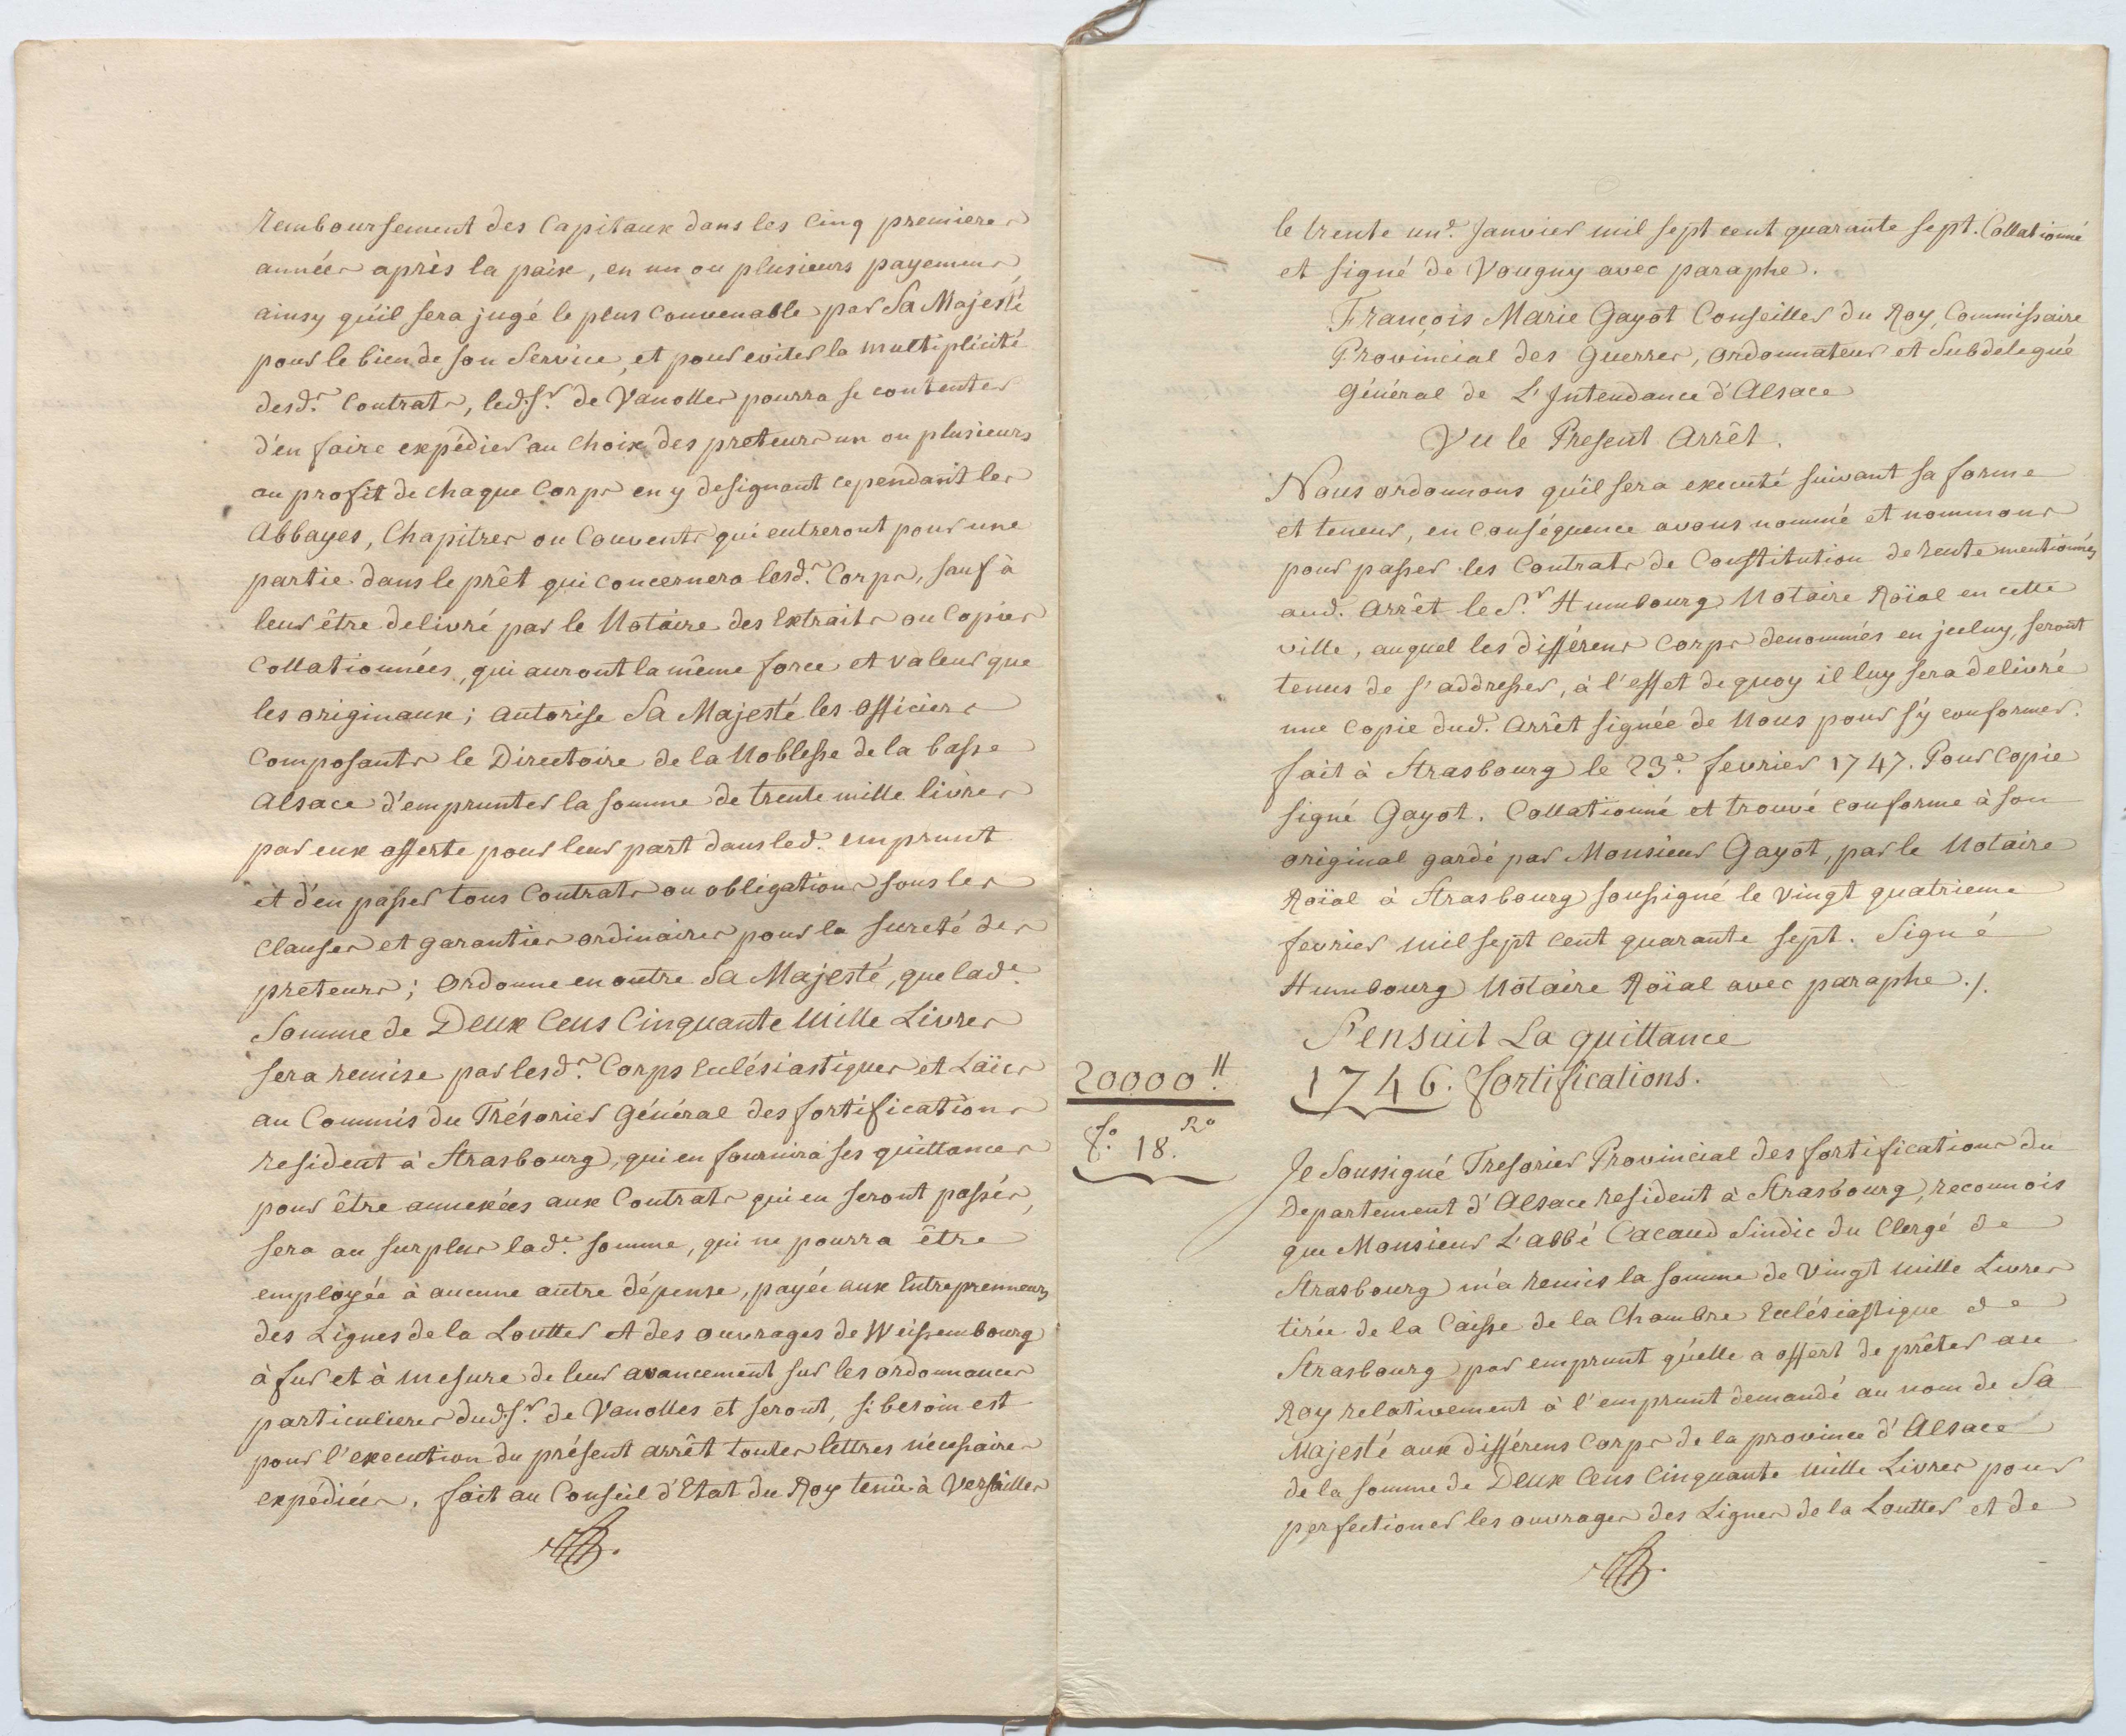 remboursement des Capitaux dans les Cinq premieres
années après la paix, en un ou plusieurs payemens
ainsy qu'il sera jugé le plus Convenable par Sa Majesté
pour le bien de son Service, et pour eviter la multiplicité
desd.s Contrats, led. S.r de Vanolles pourra se contenter
d'en faire expédier au Choix des preteurs un ou plusieurs
au profit de chaque Corps en y designant cependant les
Abbayes, Chapitres ou Couvents qui entreront pour une
partie dans le prêt qui concernera lesd.s Corps, sauf à
leur être delivré par le Notaire des Extraits ou Copies
Collationnées, qui auront la même force et valeur que
les originaux; autorise Sa Majesté les officiers
Composants le Directoire de la Noblesse de la basse
Alsace d'emprunter la somme de trente mille livres
par eux offerte pour leur part dans led. emprunt
et d'en passer tous Contrats ou obligations sous les
Clauses et garanties ordinaires pour la sureté des
preteurs; Ordonne en outre Sa Majesté, que lad.e
Somme de Deux Cens Cinquante Mille Livres
sera remise par lesd.s Corps Ecclésiastiques et Laïcs
au Commis du Trésorier Général des fortifications
resident à Strasbourg, qui en fournira ses quittances
pour être annexées aux Contrats qui en seront passés,
sera au surplus lad.e somme, qui ne pourra être
employée à aucune autre dépense, payée aux Entrepreneurs
des Lignes de la Loutter et des ouvrages de Weissembourg
à fur et à mesure de leur avancement sur les ordonnances
particulieres dud. S.r de Vanolles et seront, si besoin est
pour l'execution du présent arrêt toutes lettres nécessaires
expédiées. fait au Conseil d'Etat du Roy tenû à Versailles
le trente un.e Janvier mil sept cent quarante sept. Collationné
et signé de Vougny avec paraphe.
François Marie Gayot Conseiller du Roy, Commissaire
Provincial des Guerres, ordonnateur et Subdelegué
Général de L'Intendance d'Alsace
Vu le Present Arrêt.
Nous ordonnons qu'il sera executé suivant sa forme
et teneur, en Conséquence avons nommé et nommons
pour passer les Contrats de Constitution de rente mentionnés
aud. Arrêt le S.r Humbourg Notaire Roïal en cette
ville, auquel les différens Corps denommés en jceluy, seront
tenus de s'addresser, à l'effet de quoy il luy sera delivré
une Copie dud. Arrêt signée de Nous pour s'y conformer.
fait à Strasbourg le 23.e fevrier 1747. Pour Copie
signé Gayot. Collationné et trouvé conforme à son
original gardé par Monsieur Gayot, par le Notaire
Roïal à Strasbourg soussigné le vingt quatrieme
fevrier mil sept cent quarante sept. Signé
Humbourg Notaire Roïal avec paraphe ./.
S'ensuit La quittance
20000.#
1746. fortifications.
f.o 18. R.o
Je Soussigné Tresorier Provincial des fortifications du
Departement d'Alsace resident à Strasbourg, reconnois
que Monsieur L'abbé Cacaud Sindic du Clergé de
Strasbourg m'a remis la somme de Vingt mille Livres
tirée de la Caisse de la Chambre Ecclésiastique de
Strasbourg par emprunt qu'elle a offert de prêter au
Roy relativement à l'emprunt demandé au nom de Sa
Majesté aux différens Corps de la province d'Alsace
de la somme de Deux Cens Cinquante Mille Livres pour
perfectioner les ouvrages des Lignes de la Loutter et de